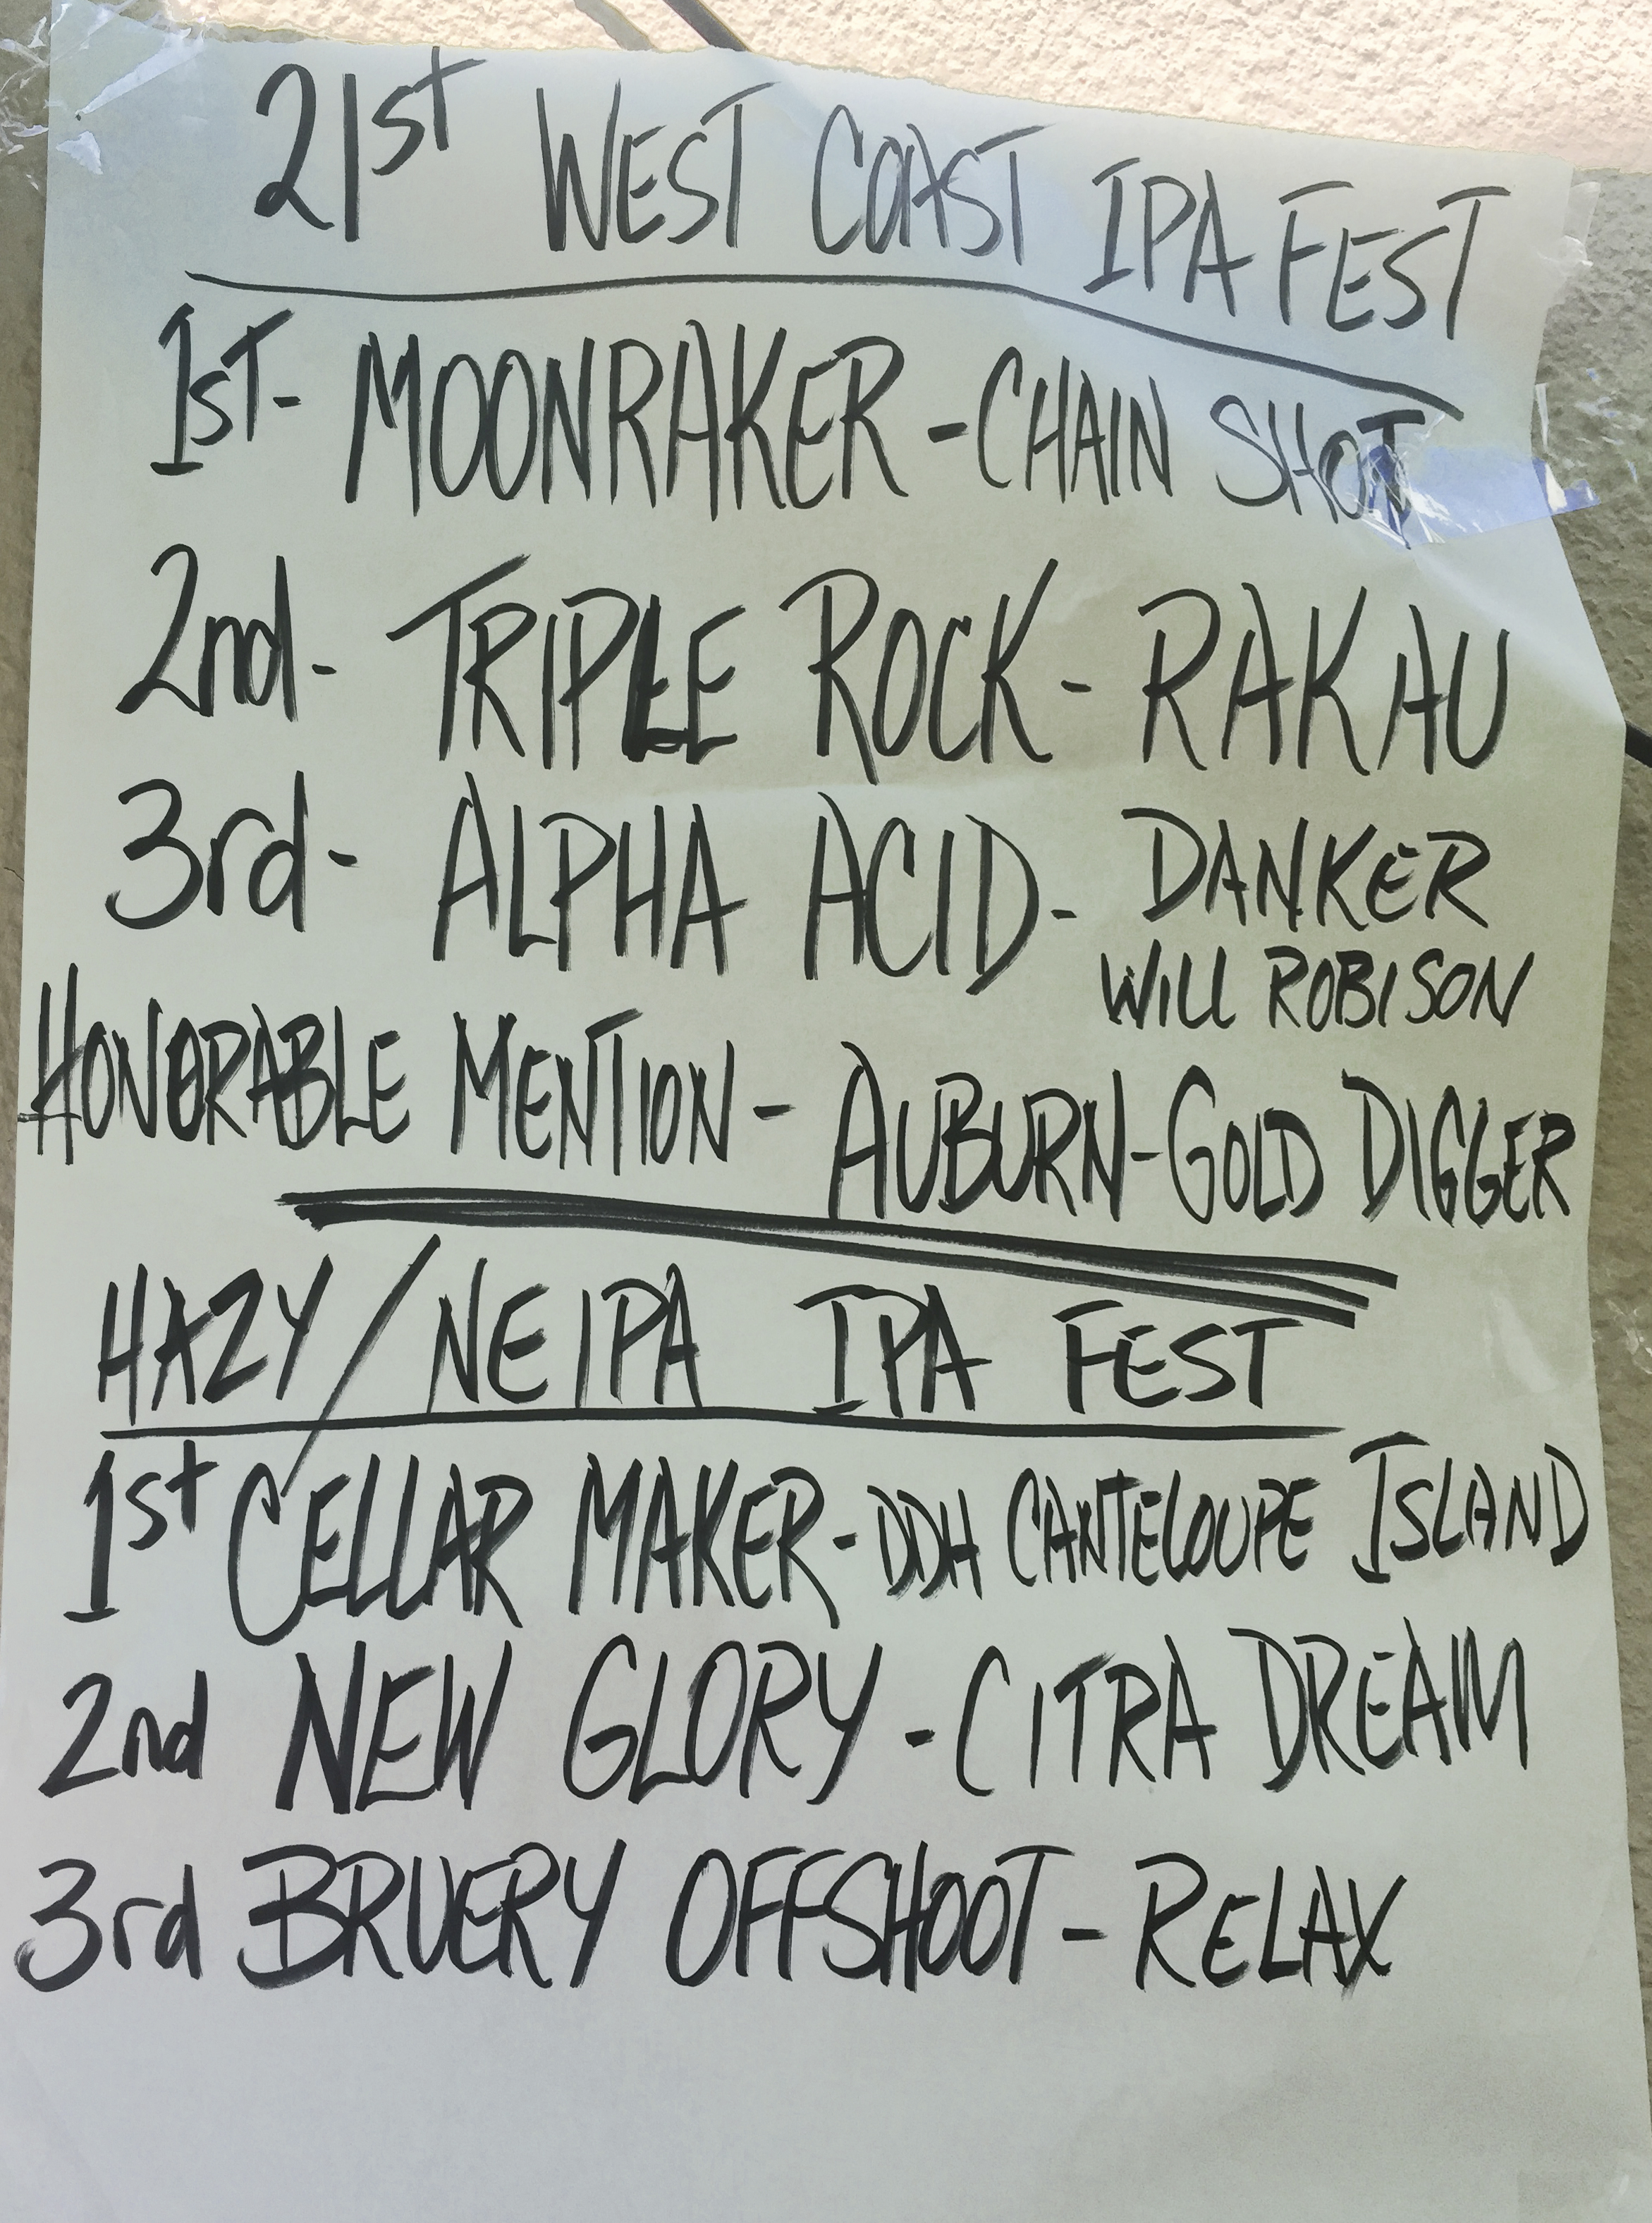 21st WEST COAST IPA FEST
1ST- MOONRAKER - CHAIN SHOT
2nd- TRIPLE ROCK - RAKAU
3rd- ALPHA ACID - DANKER
WILL ROBISON
HONORABLE MENTION - AUBURN - GOLD DIGGER
HAZY/NEIPA IPA FEST
1st CELLAR MAKER - DDH CANTELOUPE ISLAND
2nd NEW GLORY - CITRA DREAM
3rd BRUERY OFFSHOOT - RELAX